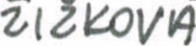 ŽIŽKOVA